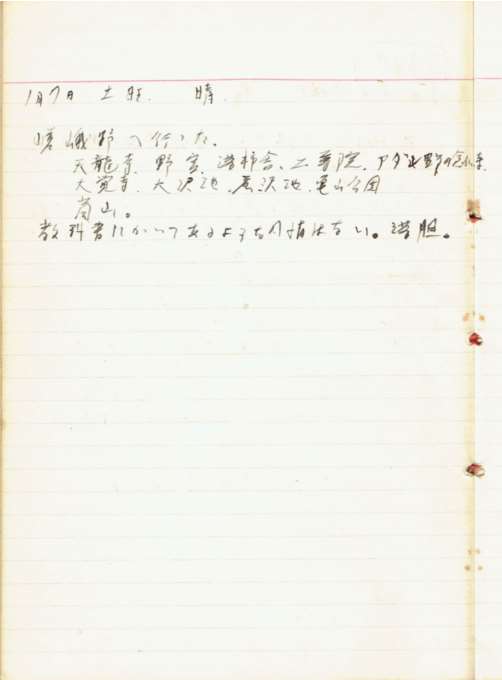 1月7日 土曜. 晴.
嵯峨野へ行った。
天龍寺、野宮、落柿舎、二尊院、アダシ野の念仏寺、
大覚寺、大沢池、広沢池、亀山公園
嵐山。
教科書にかいてあるような柿はない。落胆。